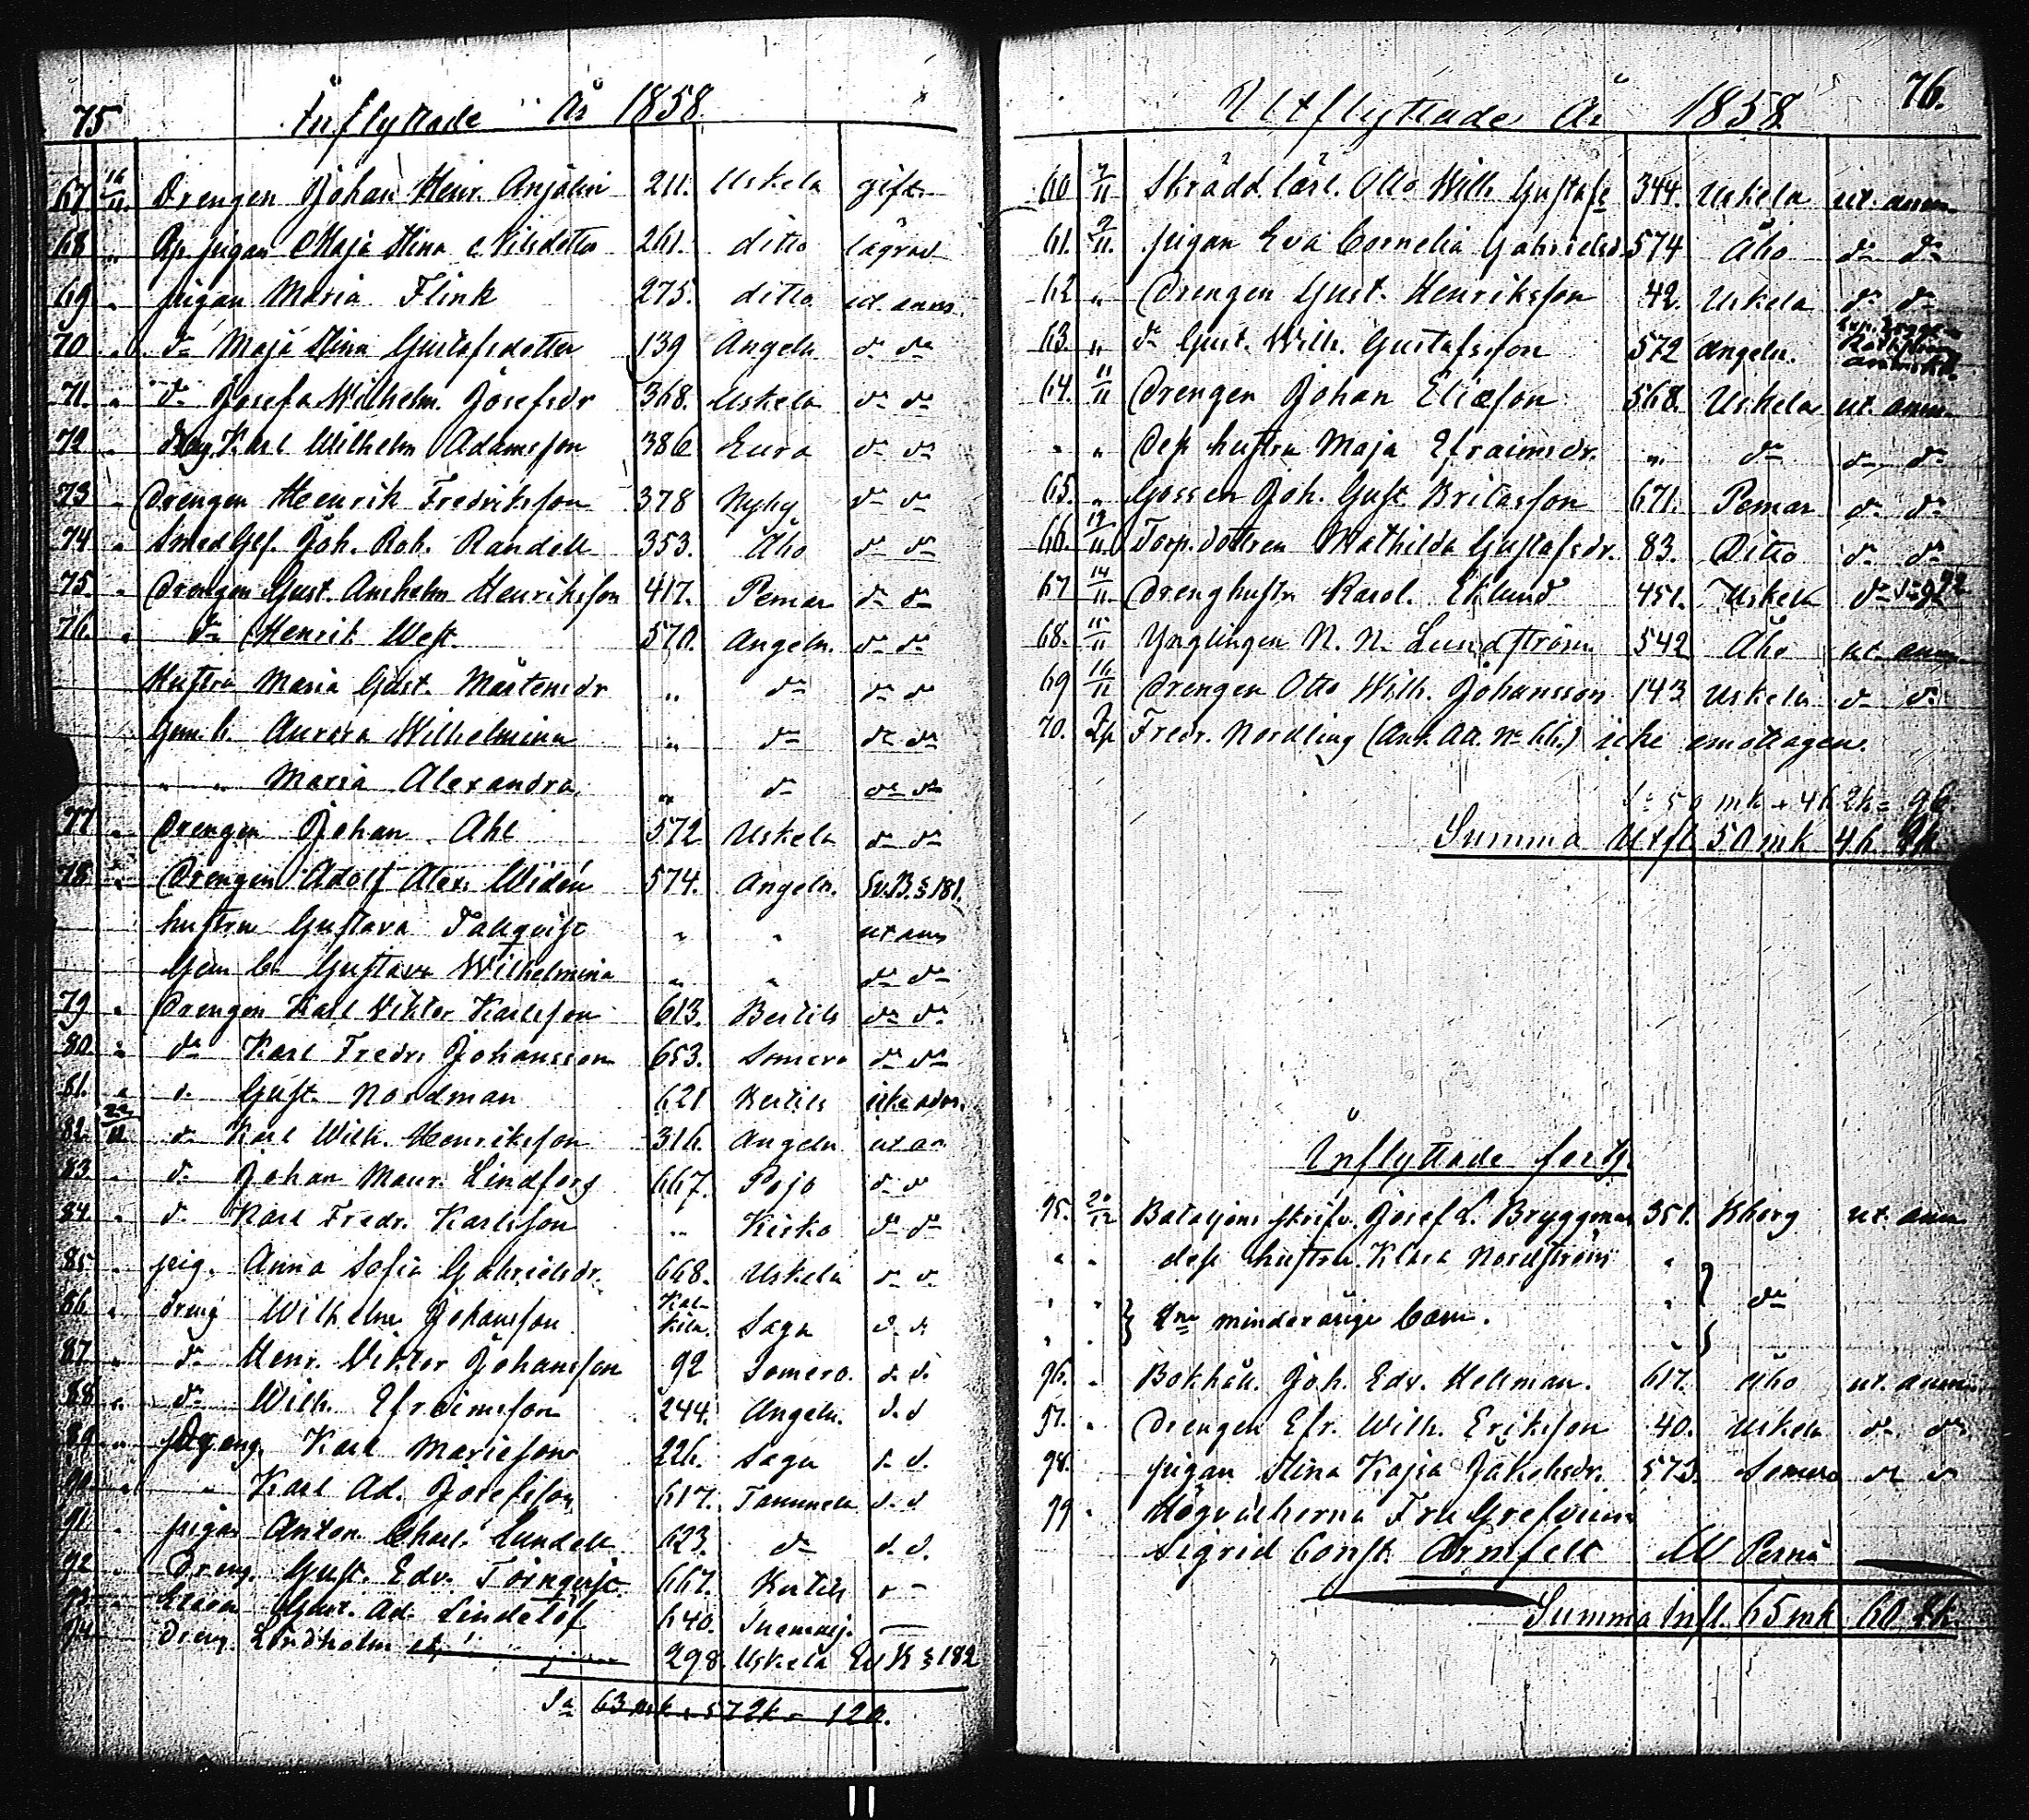 75 Inflyttade År 1858.
67 16/11. Drengen Johan Henr. Anjalin 211. Uskela gift
68 " Rp. pigan Maja Stina Nilsdotter 261. ditto lägrad
69 " pigan Maria Flink 275. ditto ut. anm.
70 " d:o Maja Stina Gustafsdotter 139 Angeln d:o d:o
71. " d:o Josefa Wilhelm. Josefsdr 368. Uskela d:o d:o
72 " dreng Karl Wilhelm Adamsson 386 Eura d:o d:o
73 " Drengen Henrik Fredriksson 378 Nyby d:o d:o
74 " Smed Ges. Joh. Rob. Randell 353. Åbo d:o d:o
75. " Drengen Gust. Anshelm Henriksson 417. Pemar d:o d:o
76. " d:o Henrik West. 570. Angeln. d:o d:o
Hustru Maria Gust. Mårtensdr " d:o d:o d:o
gem. b. Aurora Wilhelmina " d:o d:o d:o
" " Maria Alexandra " d:o d:o d:o
77 " Drengen Johan Ahl 572 Uskela d:o d:o
78. " Drengen Adolf Alex. Widén 574. Angeln. Sv.B. § 181.
hustru Gustava Tallqvist " " ut anm
Gem b. Gustava Wilhelmina " " d:o d:o
79 " Drengen Karl Viktor Karlsson 613. Bertils d:o d:o
80. " d:o Karl Fredr. Johansson 653. Somero d:o d:o
81. " d. Gust. Nordman 621 Bertils icke adm.
82. 22/11 d:o Karl Wilh. Henriksson 316. Angeln ut an
83. " d:o Johan Maur. Lindfors 667. Pojo d:o d:o
84. " d. Karl Fredr. Karlsson " Kisko d:o d:o
85 " pig. Anna Sofia Gabrielsdr. 668. Uskela d:o d:o
86. " dreng Wilhelm Johansson Kal-kila. Sagu d. d.
87 " d:o Henr. Viktor Johansson 92 Somero. d. d.
88 " d:o Wilh. Efraimsson 244. Angeln. d. d
89 " Dreng. Karl Mariesson 226. Sagu d. d.
90 " " Karl Ad. Josefsson 617. Tammela d. d
91 " pigan Anton. Charl. Lundell 623. d:o d. d.
92 " Dreng. Gust. Edv. Törnqvist 667. Bertils " –
93 " Gust. Ad. Lindelöf 640. –
94 Dreng. Lindholm 298. Uskela Ev K § 182
S:a 63 mk + 57 2k = 120.
Utflyttade År 1858 76.
60 7/11 Skrädd. lärl. Otto Wilh. Gustafs 344. Uskela ut. anm.
61. 9/11. pigan Eva Cornelia Gabrielsd. 574 Åbo d:o d:o
62 " Drengen Gust. Henriksson 42. Uskela d:o d:o
63 " d:o Gust. Wilh. Gustafsson 572 Angeln.
64. 11/11 Drengen Johan Eliasson 568. Uskela ut. anm.
" " Dess hustru Maja Efraimsdr. " d:o d:o d:o
65. " Gossen Joh. Gust. Britasson 671. Pemar d:o d:o
66. 12/11 Torp. dottren Mathilda Gustafsdr. 83. Ditto d:o d:o
67 14/11 Drenghustr Karol. Eklund 451. Uskela d:o
68. 15/11 Ynglingen N. N. Lundström 542 Åbo ut. anm.
69 16/11 Drengen Otto Wilh. Johansson 143 Uskela d:o d:o
70. Fredr. Nordling (Ant. Att. N:o 66.) icke emottagen.
S:a 50 mk + 46 2k = 96
Summa Utfl 50 mk 46 2k
Inflyttade forts.
95. 20/12 Bataljons skrifv. Josef L. Bryggman 351. Kborg ut. anm
" " dess hustru Klara Nordström "
" " } 2ne minderårige barn. " } d:o
96. " Bokhåll. Joh. Edv. Hellman. 617. Åbo ut. anm
97. " Drengen Efr. Wilh. Eriksson 40. Uskela d:o d:o
98. " pigan Stina Kajsa Jakobsdr. 573. Somero d:o d:o
99 " Högvälborna Fru Grefvinn
Sigrid Const. Armfelt Pernå
Summa Infl. 65 mk 60 2k.